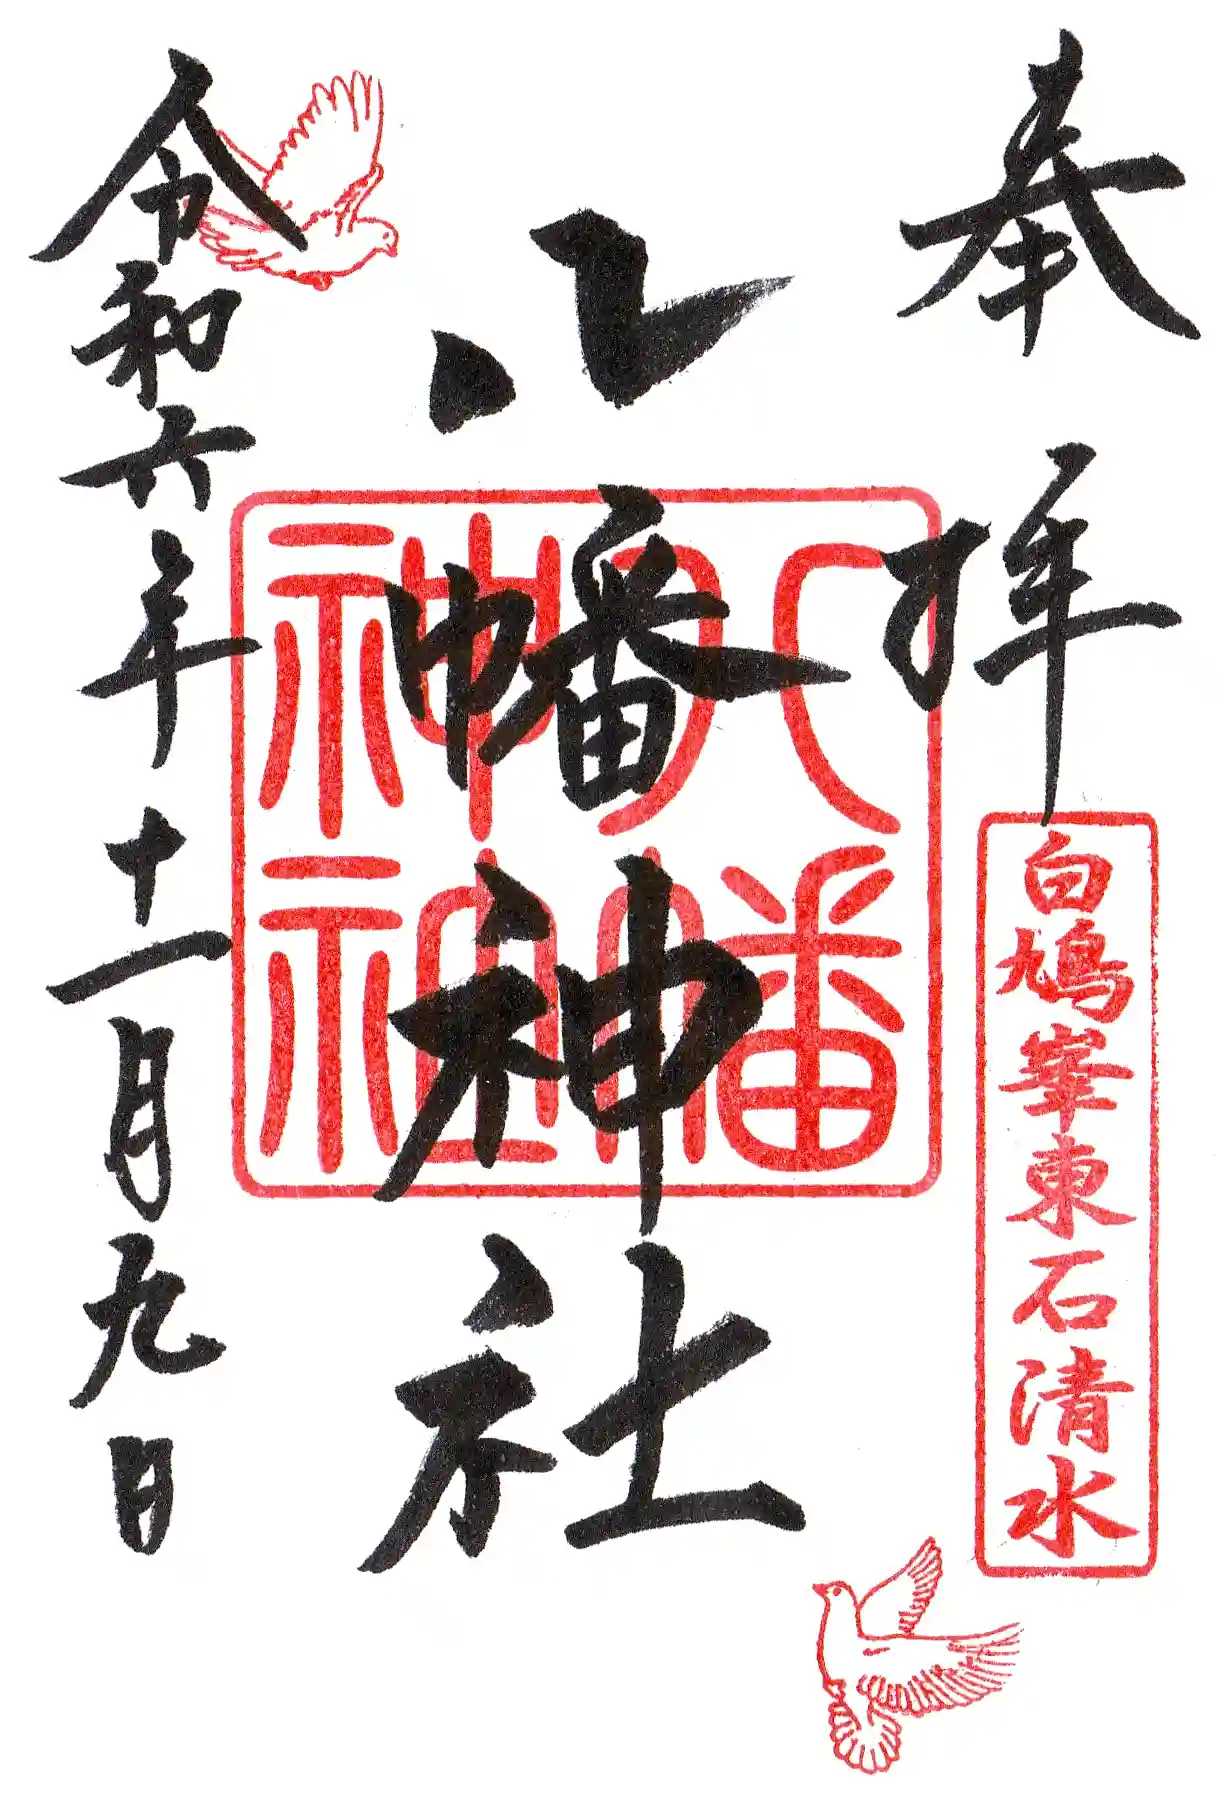 奉拝
白鳩峯東石清水
八幡神社
八幡
神社
令和六年十一月九日